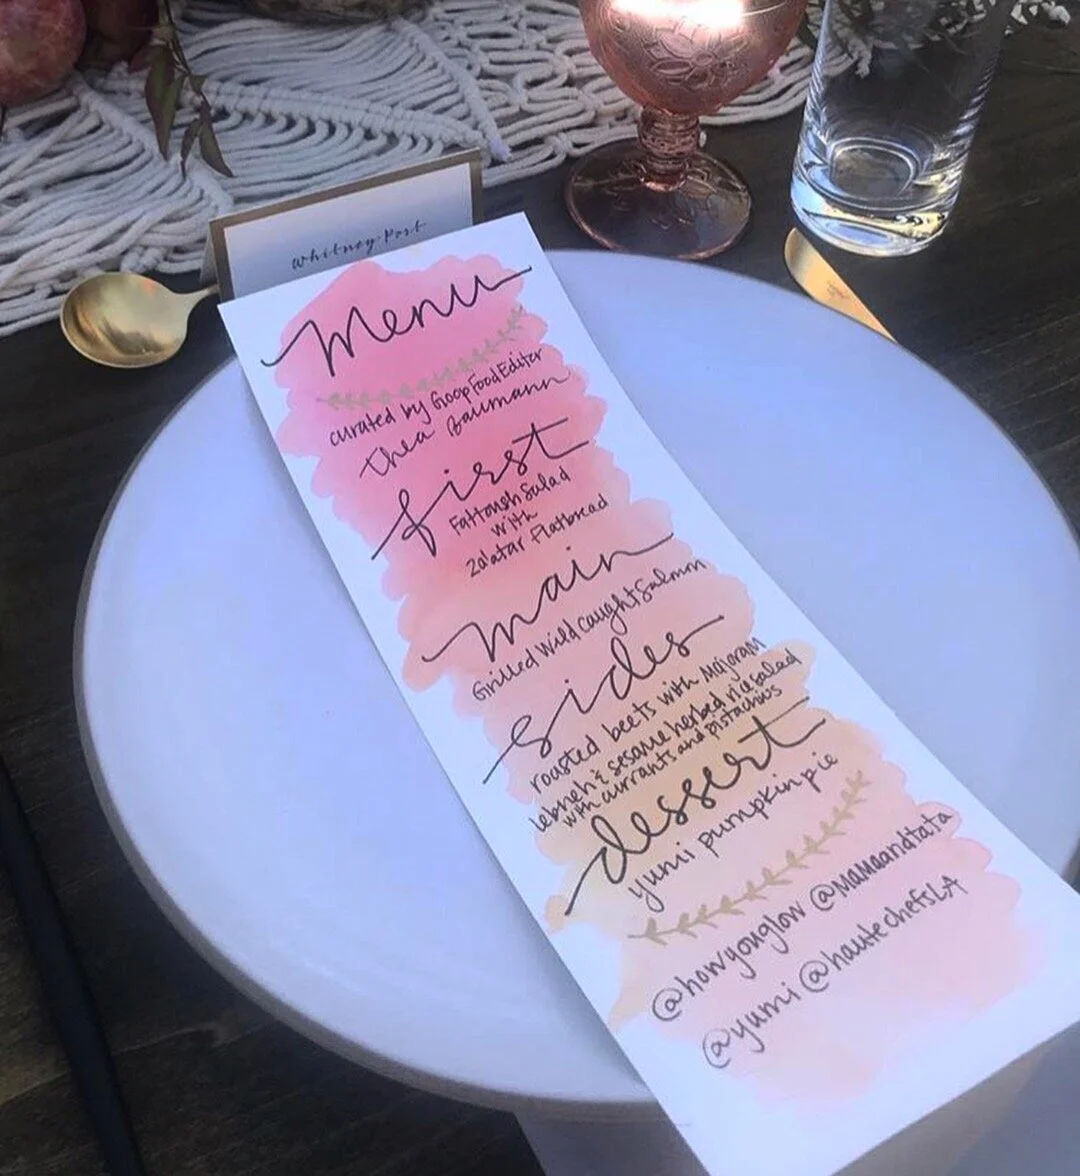 Whitney Port
Menu
curated by Goop Food Editor
Thea Baumann
first
Fattoush Salad
with
Za'atar Flatbread
main
Grilled Wild Caught Salmon
sides
roasted beets with Marjoram
lebneh & sesame herbed rice salad
with currants and pistachios
dessert
yumi pumpkin pie
@howyouglow @mamaandtata
@yumi @hautechefsLA